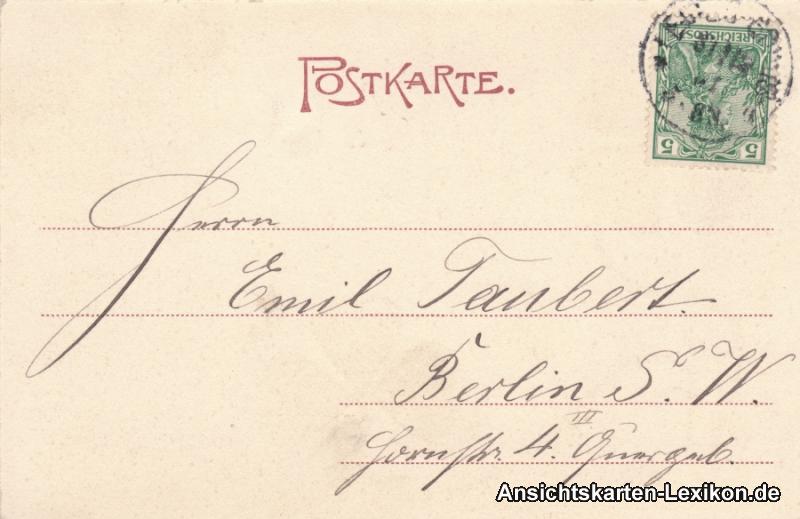 POSTKARTE.
REICHSPOST
5 5
Herrn
Emil Taubert.
Berlin S. W.
III
Hornstr. 4. Quergeb.
Ansichtskarten-Lexikon.de